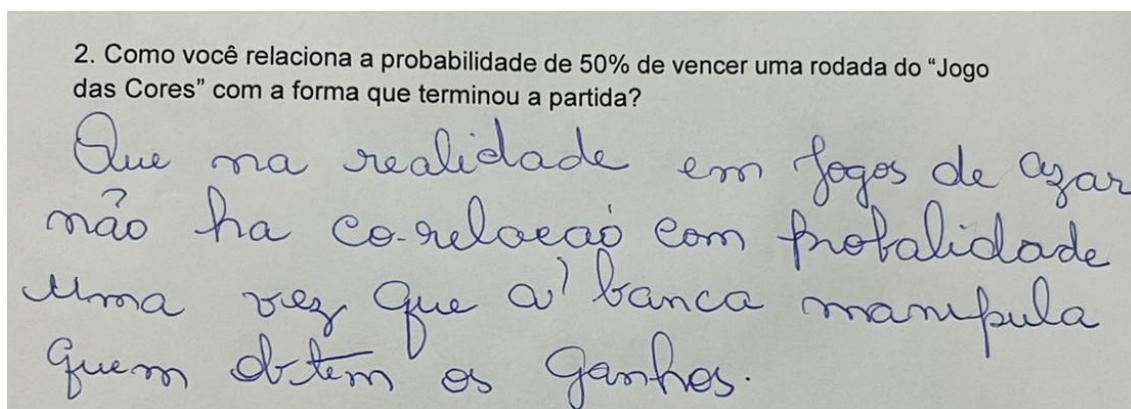 2. Como você relaciona a probabilidade de 50% de vencer uma rodada do “Jogo
das Cores” com a forma que terminou a partida?
Que na realidade em Jogos de azar
não ha co-relacaó com probalidade
Uma vez que a' banca manipula
quem obtem os ganhos.